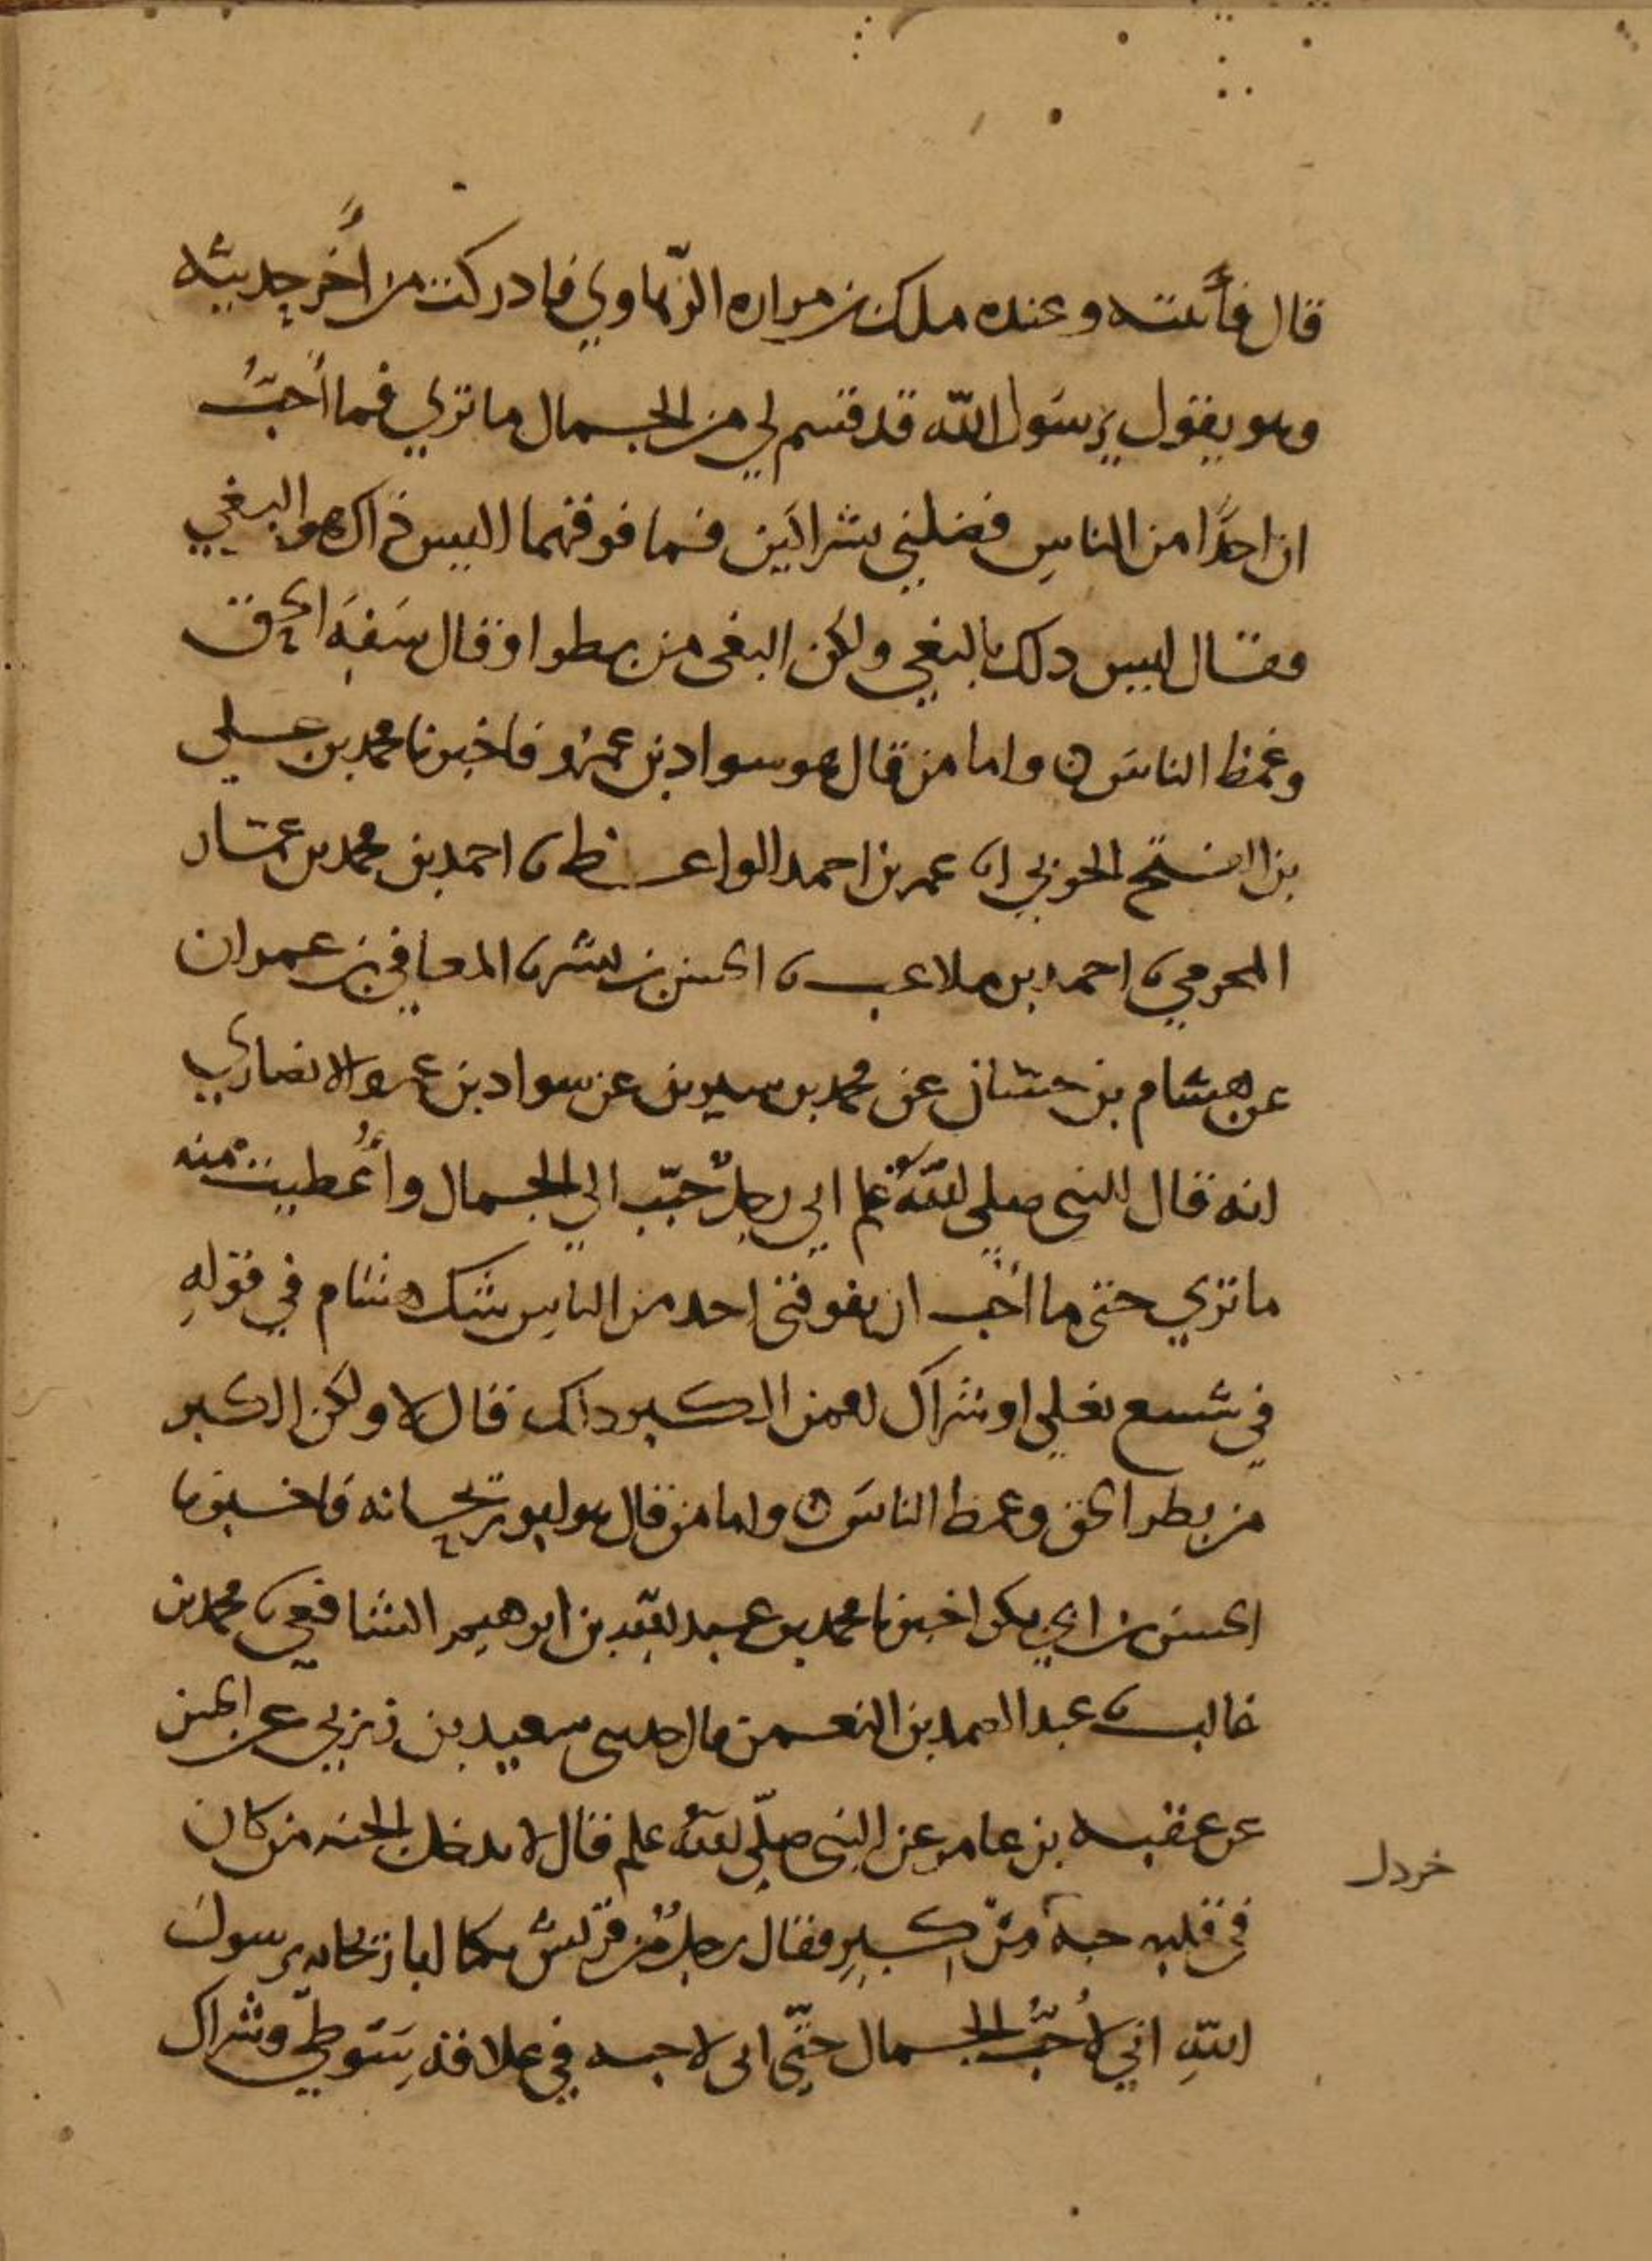 قال فأتيته وعنده ملك بن مراره الرّهاوي فادركت من آخر حديثه
وهو يقول يرسول الله قد قسم لي من الجمال ما تري فما أحبُّ
ان احدًا من الناسِ فضلني بشراكَين فما فوقهما اليس ذاك هو البغي
فقال ليس دلك بالبغي ولكن البغى من بطر او قال سَفِهَ الحق
وغمط الناسَ ه واما من قال هو سواد بن عمرٍو فاخبرنا محمد بن علي
بن الفتح الحربي انا عمر بن احمد الواعظ نا احمد بن محمد بن عمار
المحرمي نا احمد بن ملاعب نا الحسن بن بشر نا المعافي بن عمران
عن هشام بن حسان عن محمد بن سيرين عن سواد بن عمرو الانصاري
انه قال للنبى صلي الله علم اني رجلٌ حبّب الي الجمال وأُعطيت منه
ما تري حتى ما أحب ان يفوقنى احد من الناسِ شك هشام في قولهِ
في شسع نعلي او شراك افمن الكبر داك قال لا ولكن الكبر
من بطر الحق وغمط الناسَ ه واما من قال هو ابو ريحانه فاخبرنا
الحسن بن ابي بكر اخبرنا محمد بن عبد الله بن ابرهيم الشافعي نا محمد بن
غالب نا عبد الصمد بن النعمن قال حدثنى سعيد بن زربي عن الحسن
عن عقبه بن عامر عن النبى صلّي الله علم قال لا يدخل الجنه من كان
في قلبه حبة من كبرٍ فقال رجلٌ من قريش يكنا ابا ريحانه يرسول
اللهِ اني لأُحبُّ الجمال حتّي انى لاحبه في علاقة سَوطي وشراك
خردل